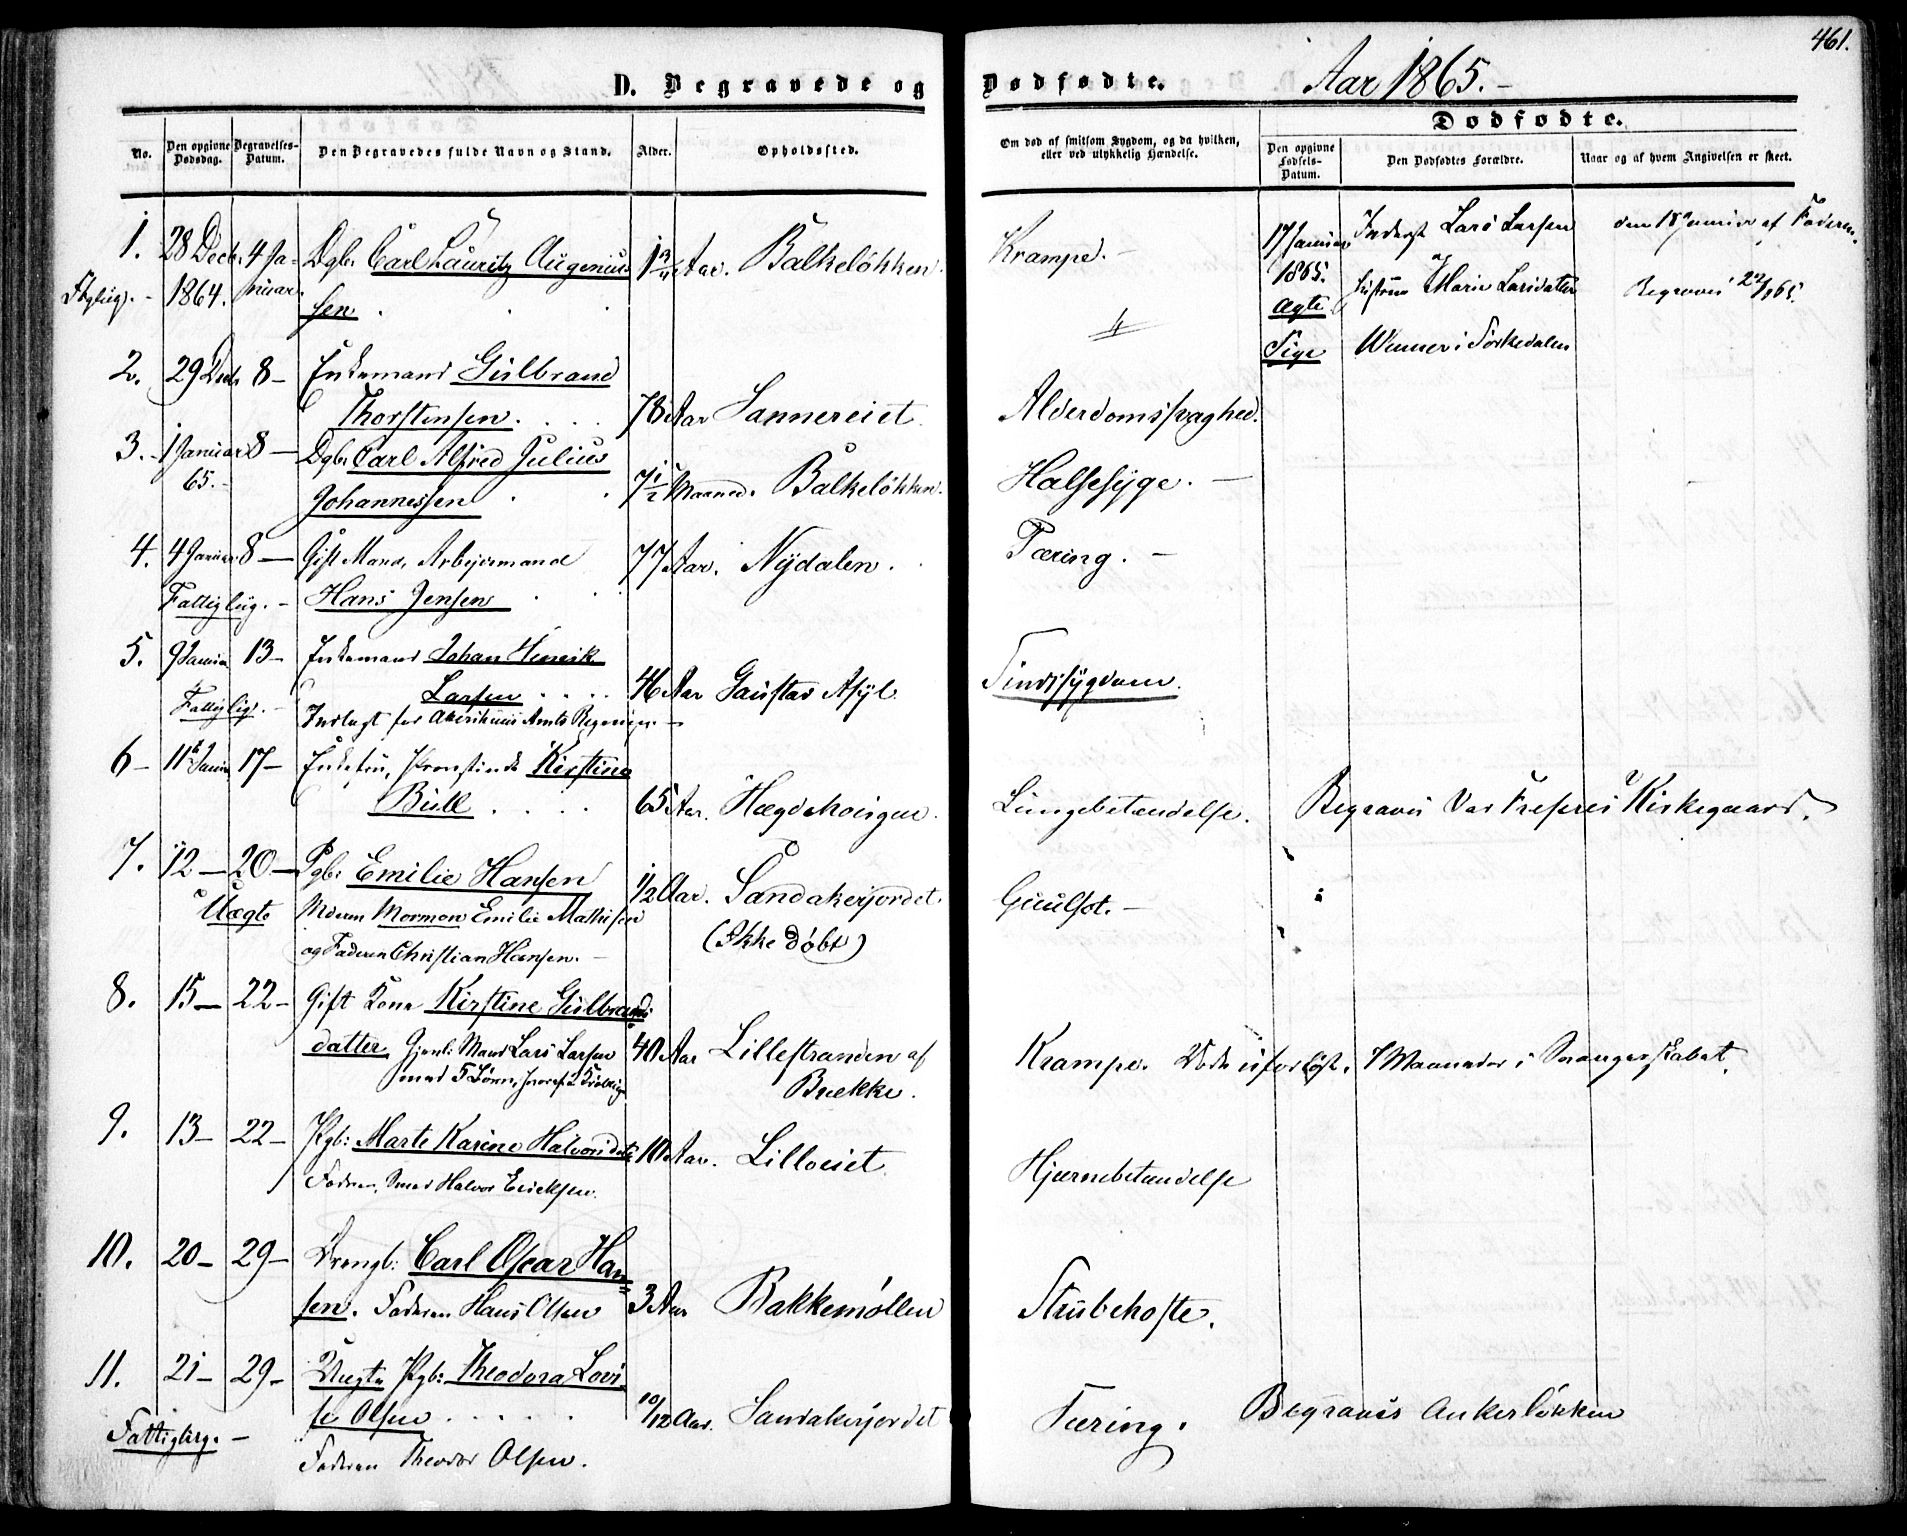 461.
D. Begravede og Dødfødte. Aar 1865.-
Dødfødte.
No.
Den opgivne Dødsdag.
Begravelses-Datum.
Den Begravedes fulde Navn og Stand.
Alder.
Opholdssted.
Om død af smitsom Sygdom, og da hvilken, eller ved ulykkelig Hændelse.
Den opgivne Fødsels-Datum.
Den Dødfødtes Forældre.
Naar og af hvem Angivelsen er skeet.
1. 28 Decb. 4 Ja- Dgb. Carl Lauritz Augenius 1 Aar. Balkeløkken. Krampe.-
1864. nuar sen
17 Januar Inderst Lars Larsen den 18 Januar af Faderen.
1865. Hustru Marie Larsdatter Begravet 22/1 65.
Ægte
Pige Wennen i Sørkedalen
2. 29 Decb 8- Enkemand Gulbrand
Thorstensen. 78 Aar Sannereiet Alderdomssvaghed.
3. 1 Januar 8- Dgb. Carl Alfred Julius
65.- Johannessen 7 1/2 Maaned. Balkeløkken. Halsesyge.-
4. 4 Januar 8- Gift Mand, Arbejdsmand 77 Aar. Nydalen. Tæring.-
Fattiglig.- Hans Jensen
5. 9 Januar 13- Enkemand Johan Henrik
Fattiglig.- Larsen 46 Aar Gaustad Asyl Sindssygdom.
Indlagt for Akershuus Amts Regning.-
6- 11 Janua 17- Enkefru, Provstinde Kirstine
Bull 65 Aar. Hægdehougen. Lungebetændelse. Begravet Vor Frelsers Kirkegaard.
7. 12- 20- Pgb: Emilie Hansen 1/2 Aar. Sandakerjordet. Guulsot.-
Uægte Moderen Mormon Emilie Mathisen (Ikke døbt)
og Faderen Christian Hansen.-
8. 15- 22- Gift Kone Kirstine Gulbrands
datter, Gjenl: Mand Lars Larsen 40 Aar Lillestranden af Krampe. Døde uforløst, 7 Maaneder i Svangerskabet.
med 5 Børn, Brekke.
9. 13- 22- Pgb: Marte Karine Halvorsdatr 10 Aar. Lilloeiet Hjernebetændelse
Faderen, Smed Halvor Ericksen.
10. 20- 29- Drengb: Carl Oscar Han=
sen. Faderen Hans Olsen 3 Aar Bakkemøllen Strubehoste.
11. 21- 29- Uægte Pgb: Theodora Lovi-
se Olsen 10/12 Aar. Sandakerjordet Tæring. Begravet Ankerløkken
Fattiglig.-
Faderen Theodor Olsen.